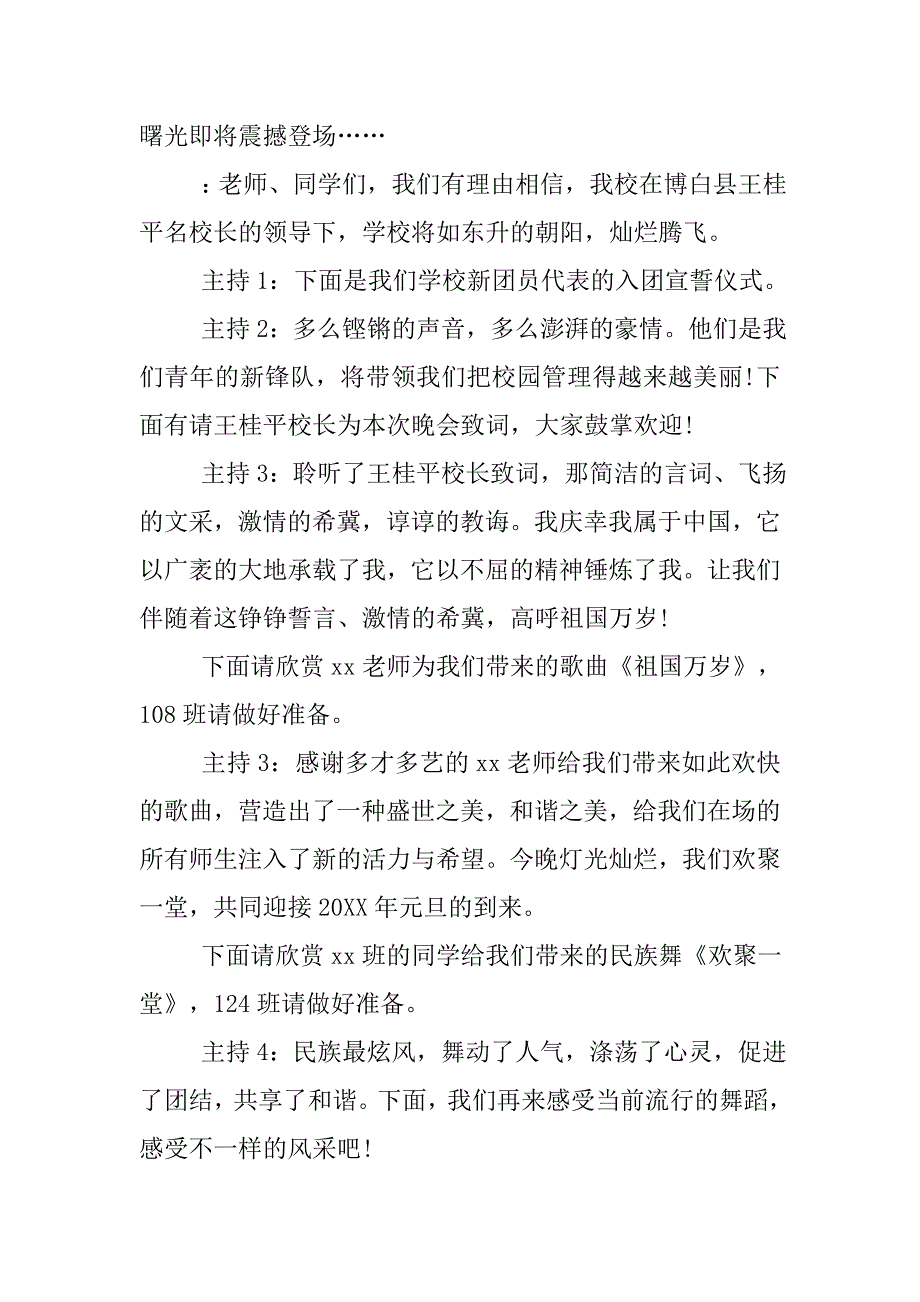 曙光即将震撼登场……
：老师、同学们，我们有理由相信，我校在博白县王桂
平名校长的领导下，学校将如东升的朝阳，灿烂腾飞。
主持 1：下面是我们学校新团员代表的入团宣誓仪式。
主持 2：多么铿锵的声音，多么澎湃的豪情。他们是我
们青年的新锋队，将带领我们把校园管理得越来越美丽!下
面有请王桂平校长为本次晚会致词，大家鼓掌欢迎!
主持 3：聆听了王桂平校长致词，那简洁的言词、飞扬
的文采，激情的希冀，谆谆的教诲。我庆幸我属于中国，它
以广袤的大地承载了我，它以不屈的精神锤炼了我。让我们
伴随着这铮铮誓言、激情的希冀，高呼祖国万岁!
下面请欣赏 xx 老师为我们带来的歌曲《祖国万岁》，
108 班请做好准备。
主持 3：感谢多才多艺的 xx 老师给我们带来如此欢快
的歌曲，营造出了一种盛世之美，和谐之美，给我们在场的
所有师生注入了新的活力与希望。今晚灯光灿烂，我们欢聚
一堂，共同迎接 20XX 年元旦的到来。
下面请欣赏 xx 班的同学给我们带来的民族舞《欢聚一
堂》，124 班请做好准备。
主持 4：民族最炫风，舞动了人气，涤荡了心灵，促进
了团结，共享了和谐。下面，我们再来感受当前流行的舞蹈，
感受不一样的风采吧!